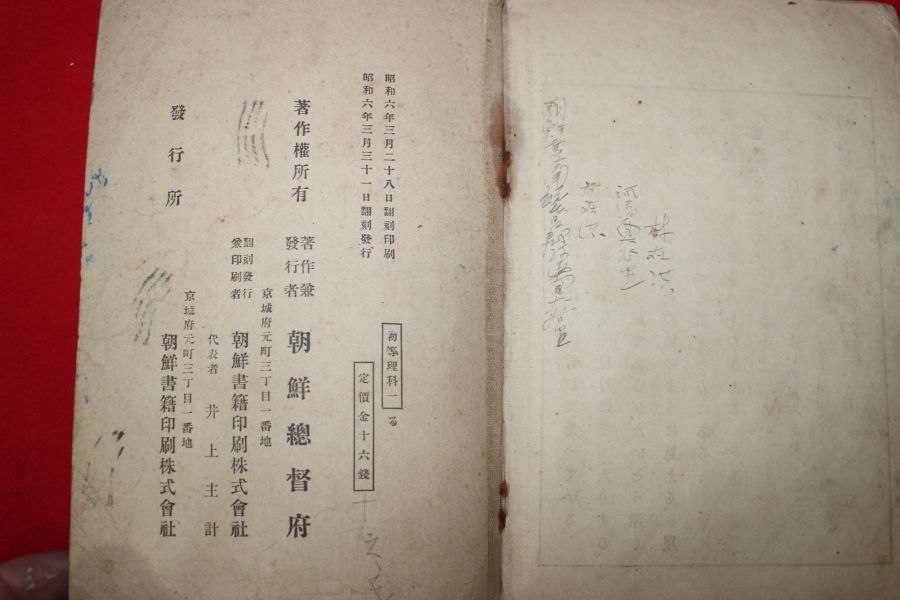 昭和六年三月二十八日翻刻印刷
昭和六年三月三十一日翻刻發行
初等理科一
る
定價金十六錢
著作權所有
著作兼
發行者
朝鮮總督府
京城府元町三丁目一番地
翻刻發行
兼印刷者
朝鮮書籍印刷株式會社
代表者 井上主計
京城府元町三丁目一番地
發行所
朝鮮書籍印刷株式會社
林在洪